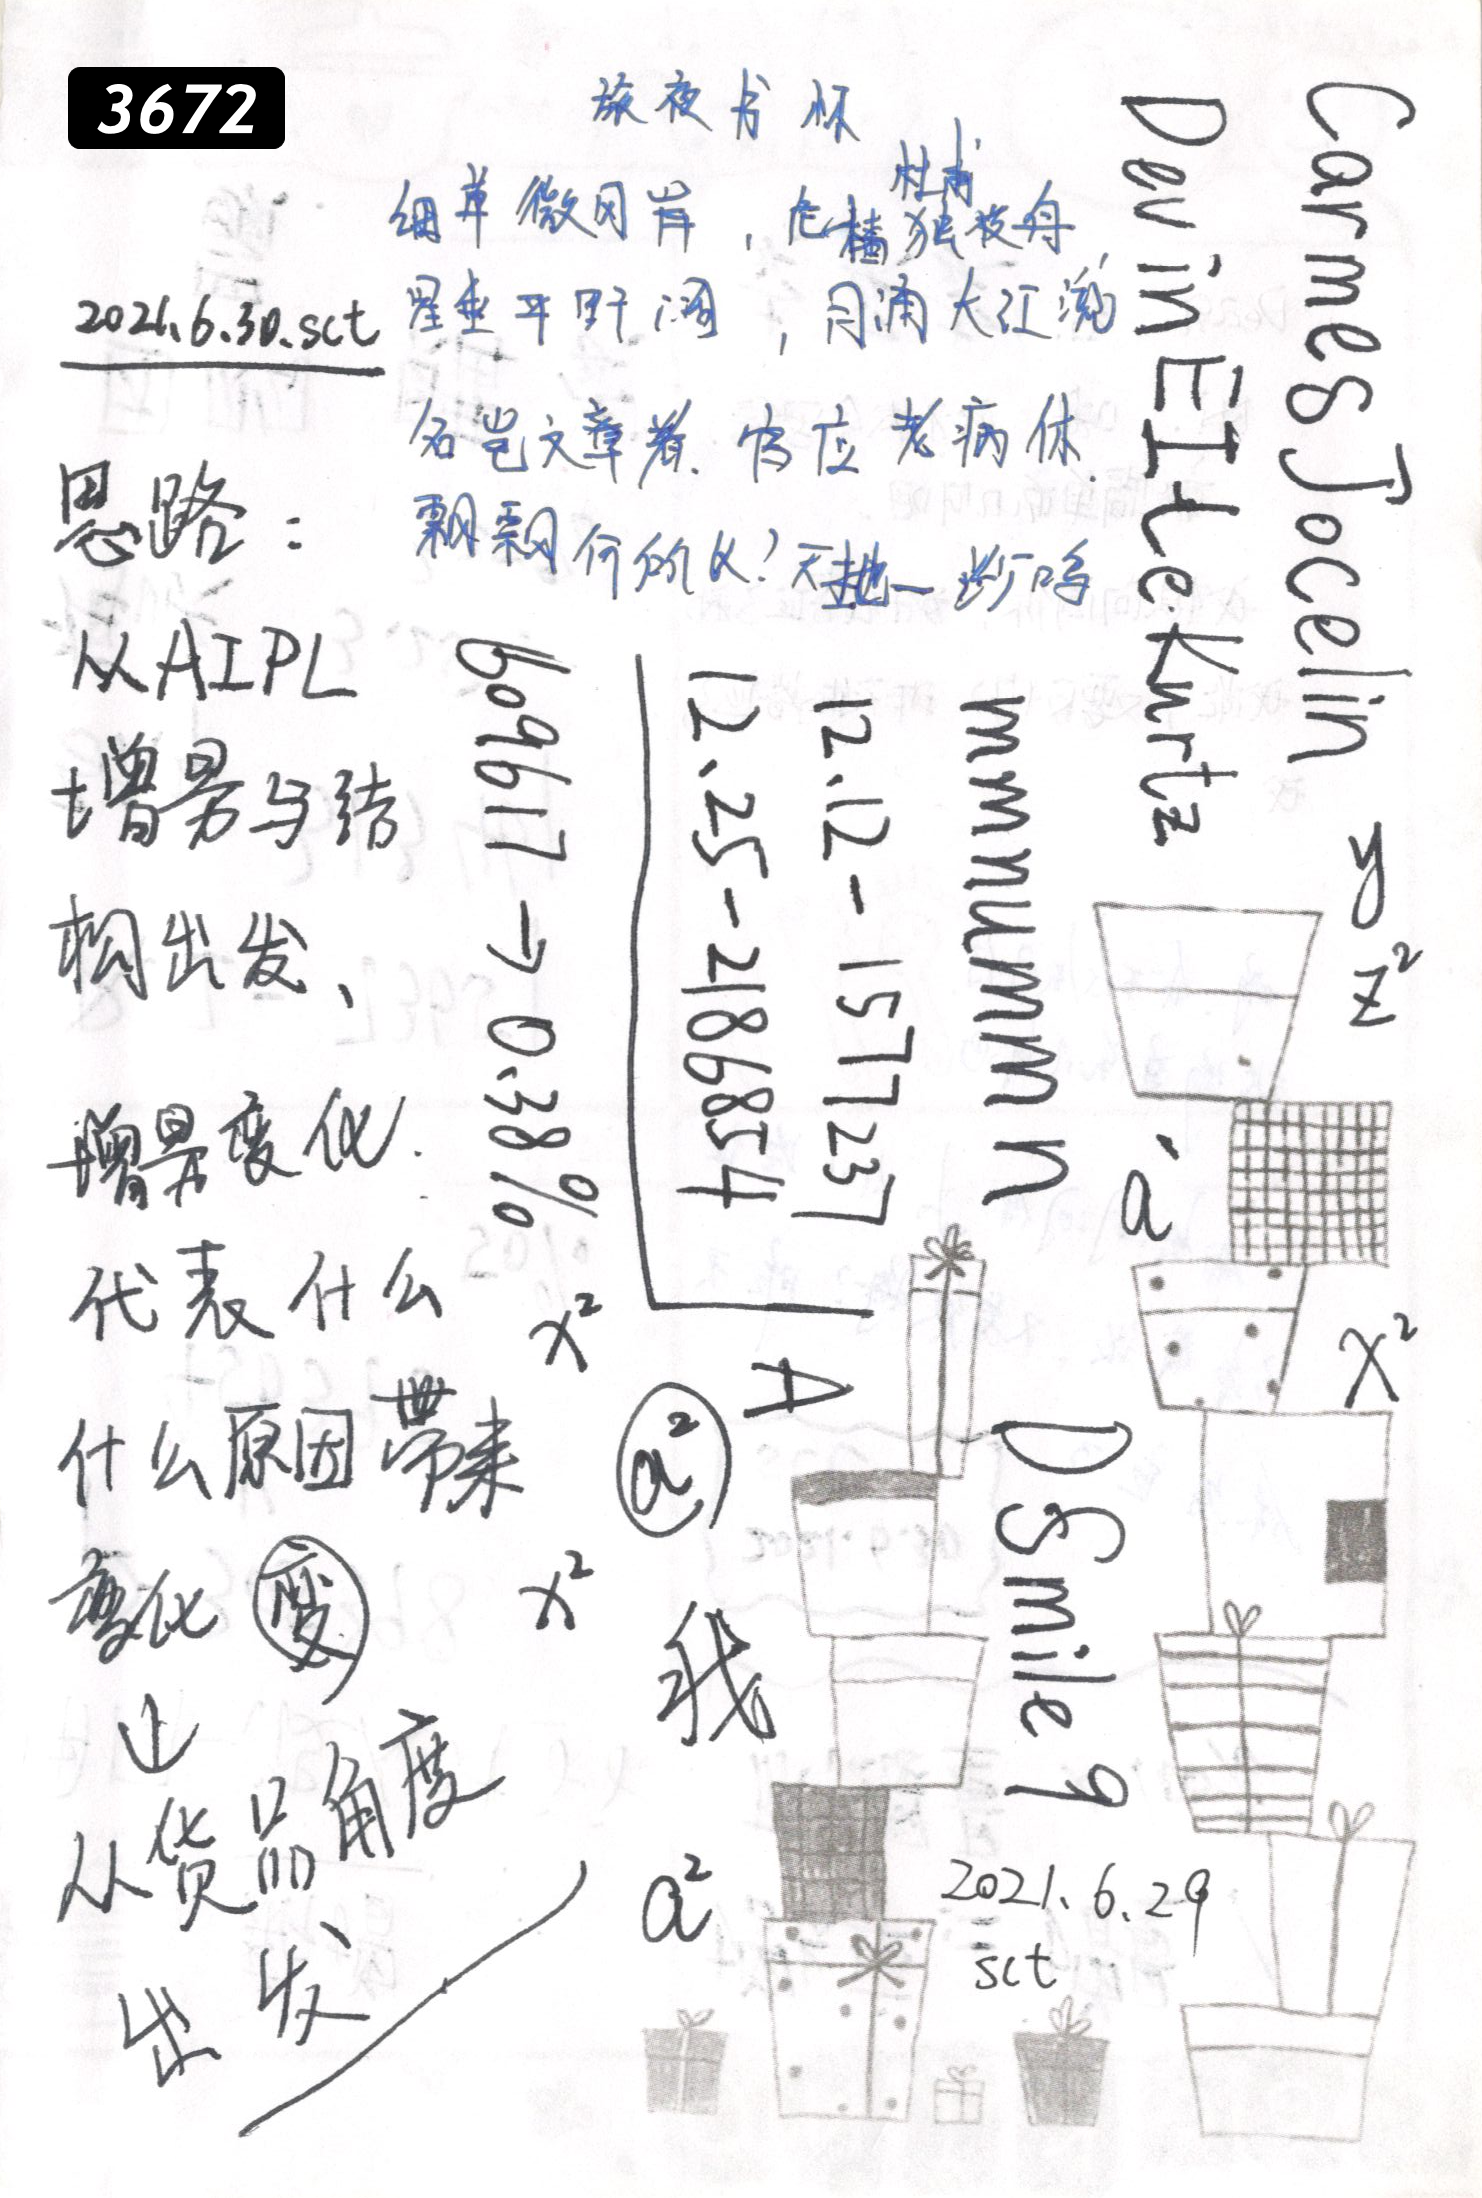 3672
旅夜书怀
杜甫
细草微风岸，危樯独夜舟
星垂平野阔，月涌大江流
名岂文章著、官应老病休
飘飘何所似？天地一沙鸥
2021.6.30.sct
思路：
从AIPL
增易与结
构出发、
增易变化.
代表什么
什么原因带来
变化 变
↓
从货品角度
出发、
609617→0.38%
12.25-218654
12.12-1577237
A
Carmes Jocelin
Devin
Kurtz
y
z²
a
x²
x²
a²
x²
我
a²
DSmile 9
2021.6.29
sct